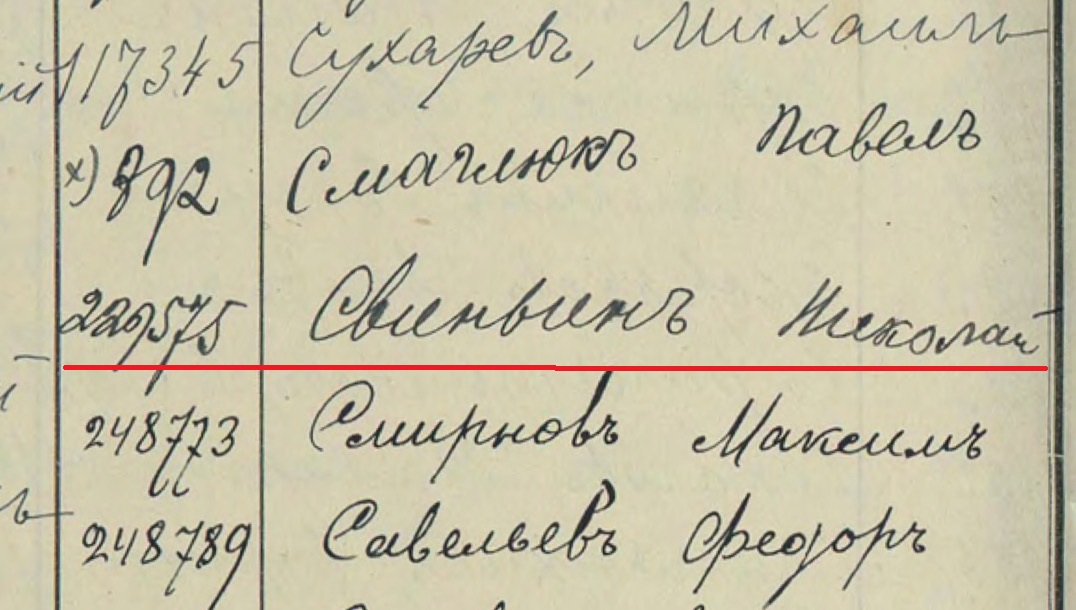 117345 Сухаревъ, Михаилъ
х) 892 Смаглюкъ Павелъ
229575 Свиньинъ Николай
248773 Смирновъ Максимъ
248789 Савельевъ Федоръ